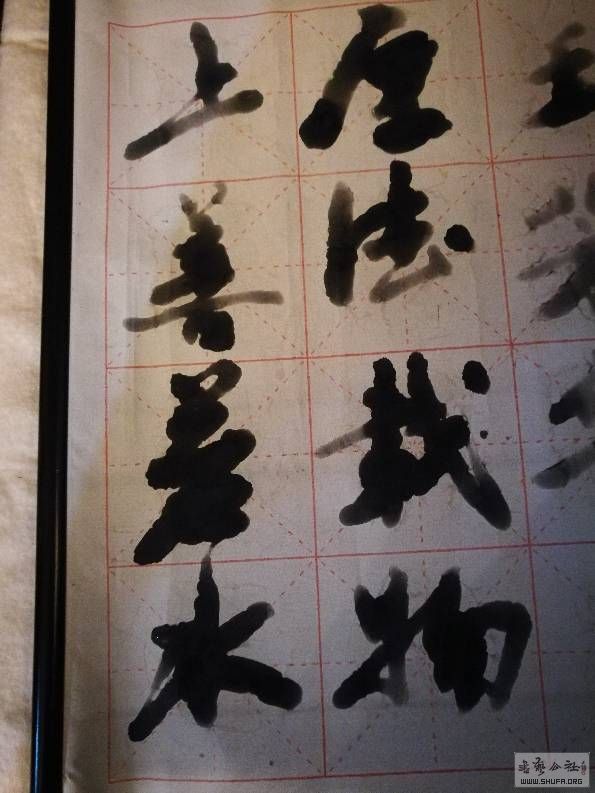 厚德载物
上善若水
書艺公社
WWW.SHUFA.ORG